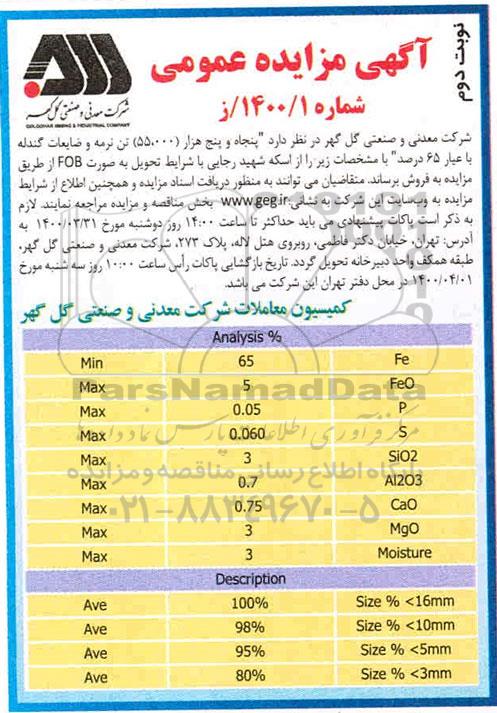 نوبت دوم
آگهی مزایده عمومی
شماره ۱/۱۴۰۰/ز
شرکت معدنی و صنعتی گل گهر
GOLGOHAR MINING & INDUSTRIAL COMPANY
شرکت معدنی و صنعتی گل گهر در نظر دارد "پنجاه و پنج هزار (۵۵،۰۰۰) تن نرمه و ضایعات گندله
با عیار ۶۵ درصد" با مشخصات زیر را از اسکه شهید رجایی با شرایط تحویل به صورت FOB از طریق
مزایده به فروش برساند. متقاضیان می توانند به منظور دریافت اسناد مزایده و همچنین اطلاع از شرایط
مزایده به وب‌سایت این شرکت به نشانی: www.geg.ir بخش مناقصه و مزایده مراجعه نمایند. لازم
به ذکر است پاکات پیشنهادی می باید حداکثر تا ساعت ۱۴:۰۰ روز دوشنبه مورخ ۱۴۰۰/۰۳/۳۱ به
آدرس: تهران، خیابان دکتر فاطمی، روبروی هتل لاله، پلاک ۲۷۳، شرکت معدنی و صنعتی گل گهر،
طبقه همکف واحد دبیرخانه تحویل گردد. تاریخ بازگشایی پاکات رأس ساعت ۱۰:۰۰ روز سه شنبه مورخ
۱۴۰۰/۰۴/۰۱ در محل دفتر تهران این شرکت می باشد.
کمیسیون معاملات شرکت معدنی و صنعتی گل گهر
Analysis %
Min 65 Fe
Max 5 FeO
Max 0.05 P
Max 0.060 S
Max 3 SiO2
Max 0.7 Al2O3
Max 0.75 CaO
Max 3 MgO
Max 3 Moisture
Description
Ave 100% Size % <16mm
Ave 98% Size % <10mm
Ave 95% Size % <5mm
Ave 80% Size % <3mm
ParsNamadData
مرکز فرآوری اطلاعات پارس نماد داده ها
پایگاه اطلاع رسانی مناقصه و مزایده
۰۲۱-۸۸۳۴۹۶۷۰-۵